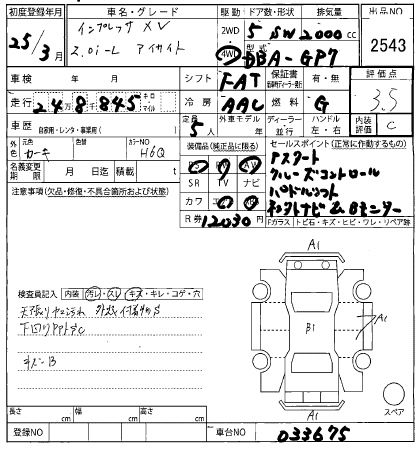 初度登録年月 車名・グレード 駆動 ドア数・形状 排気量 出品NO
25年/3月 インプレッサ XV 2WD 5 SW 2000cc 2543
2.0i-L アイサイト 4WD 型式 DBA-GP7
車検 年 月 シフト FAT 保証書 有・無 評価点
走行 24万8千845 キロ マイル 冷房 AAC 燃料 G 3.5
車歴 自家用・レンタ・事業用( ) 定員 5人 外車モデル年 ディーラー 並行 ハンドル 左・右 内装 C
元色 カーキ 色替 カラーNO H6Q 装備品(純正品に限る) セールスポイント(正常に作動するもの)
名義変更期限 月 日迄 積載量 t SR TV ナビ アスタート
クルーズコントロール
注意事項(欠品・修復・不具合箇所および状態) カワ パドルシフト
R券 12030円 社外ナビ Bモニター
Fガラス・トビ石・キズ・ヒビ・ワレ・リペア跡
A1
検査員記入 内装 汚レ・スレ・キズ・キレ・コゲ・穴
B1 A1
下回りサビC
キズB
A1
スペア
長さ cm 幅 cm 高さ cm
登録NO 車台NO 033675